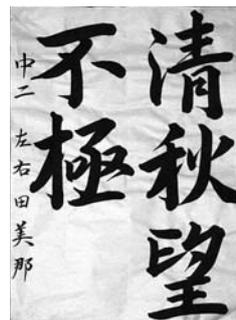 清秋望
不極
中二 左右田美那